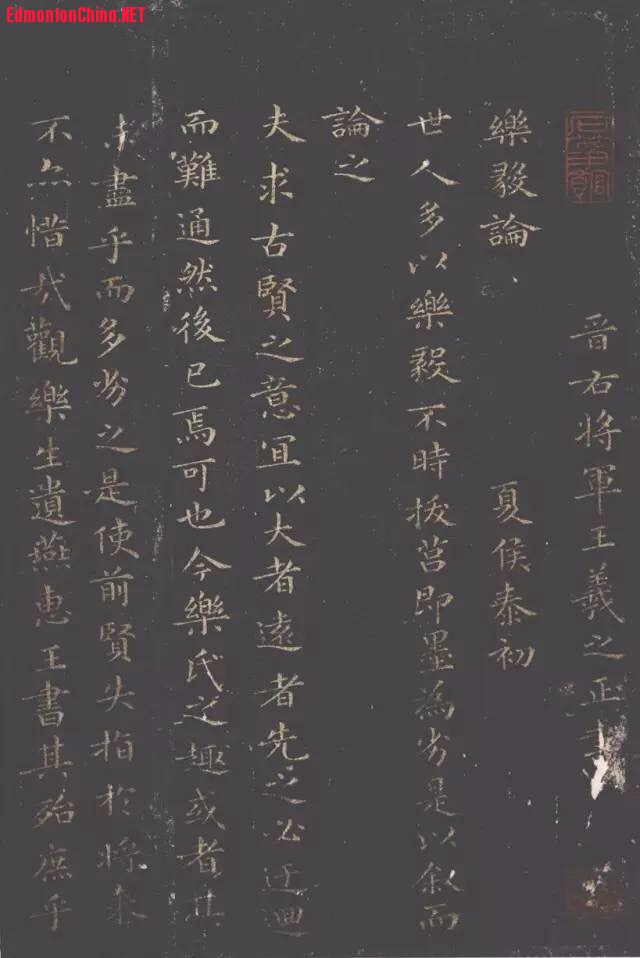 EdmontonChina.NET
晋右將軍王羲之正書
樂毅論 夏侯泰初
世人多以樂毅不時拔莒即墨為劣是以叙而
論之
夫求古賢之意宜以大者遠者先之必迂迴
而難通然後已焉可也今樂氏之趣或者其
未盡乎而多劣之是使前賢失指於將來
不亦惜哉觀樂生遺燕惠王書其殆庶乎